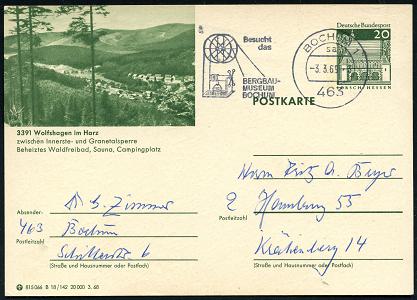 Besucht
das
BERGBAU-
MUSEUM
BOCHUM
BOCHUM 1
-3.3.69
463
Deutsche Bundespost
20
LORSCH/HESSEN
POSTKARTE
3391 Wolfshagen im Harz
zwischen Innerste- und Granetalsperre
Beheiztes Waldfreibad, Sauna, Campingplatz
G. Zimmer
Absender:
463 Bochum
Postleitzahl
Schillerstr. 6
(Straße und Hausnummer oder Postfach)
Herrn Fritz A. Beyer
2 Hamburg 55
Postleitzahl
14
(Straße und Hausnummer oder Postfach)
815066 B 18/142 20000 3.68